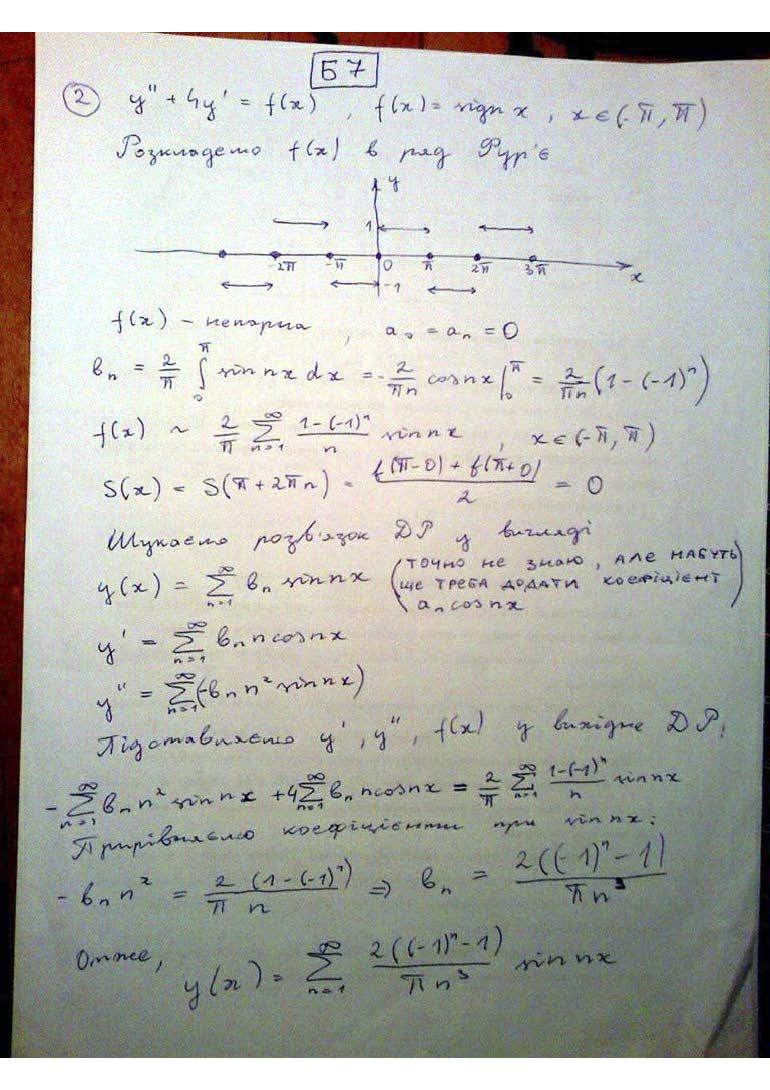 Б 7
② y'' + 4y' = f(x) , f(x) = sign x , x ∈ (-π, π)
Розкладемо f(x) в ряд Фур'є
y
1
-2π -π 0 π 2π 3π x
-1
f(x) - непарна , a₀ = aₙ = 0
bₙ = 2/π ∫₀^π sin nx dx = -2/(πn) cos nx |₀^π = 2/(πn) (1 - (-1)ⁿ)
f(x) ~ 2/π ∑_{n=1}^∞ (1-(-1)ⁿ)/n sin nx , x ∈ (-π, π)
S(x) = S(π + 2πn) = (f(π-0) + f(π+0))/2 = 0
Шукаємо розв'язок ДР у вигляді
y(x) = ∑_{n=1}^∞ bₙ sin nx (точно не знаю, але мабуть ще треба додати коефіцієнт aₙ cos nx)
y' = ∑_{n=1}^∞ bₙ n cos nx
y'' = ∑_{n=1}^∞ (-bₙ n² sin nx)
Підставляємо y', y'', f(x) у вихідне ДР:
- ∑_{n=1}^∞ bₙ n² sin nx + 4∑_{n=1}^∞ bₙ n cos nx = 2/π ∑_{n=1}^∞ (1-(-1)ⁿ)/n sin nx
Прирівняємо коефіцієнти при sin nx:
- bₙ n² = 2/π (1-(-1)ⁿ)/n ⇒ bₙ = 2((-1)ⁿ - 1)/(πn³)
Отже,
y(x) = ∑_{n=1}^∞ 2((-1)ⁿ-1)/(πn³) sin nx